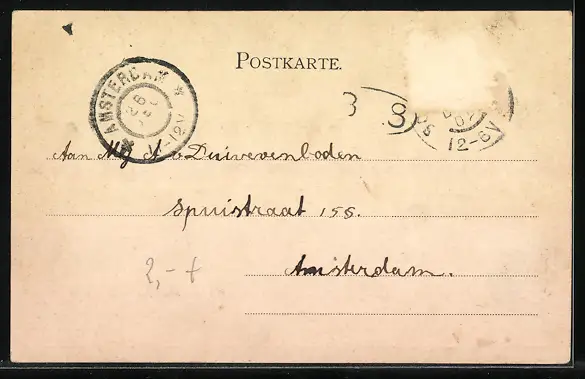 POSTKARTE.
AMSTERDAM
12V
3 8
07
12-6V
Aan Mej Duivevenboden
Spuistraat 155.
Amsterdam.
2,-